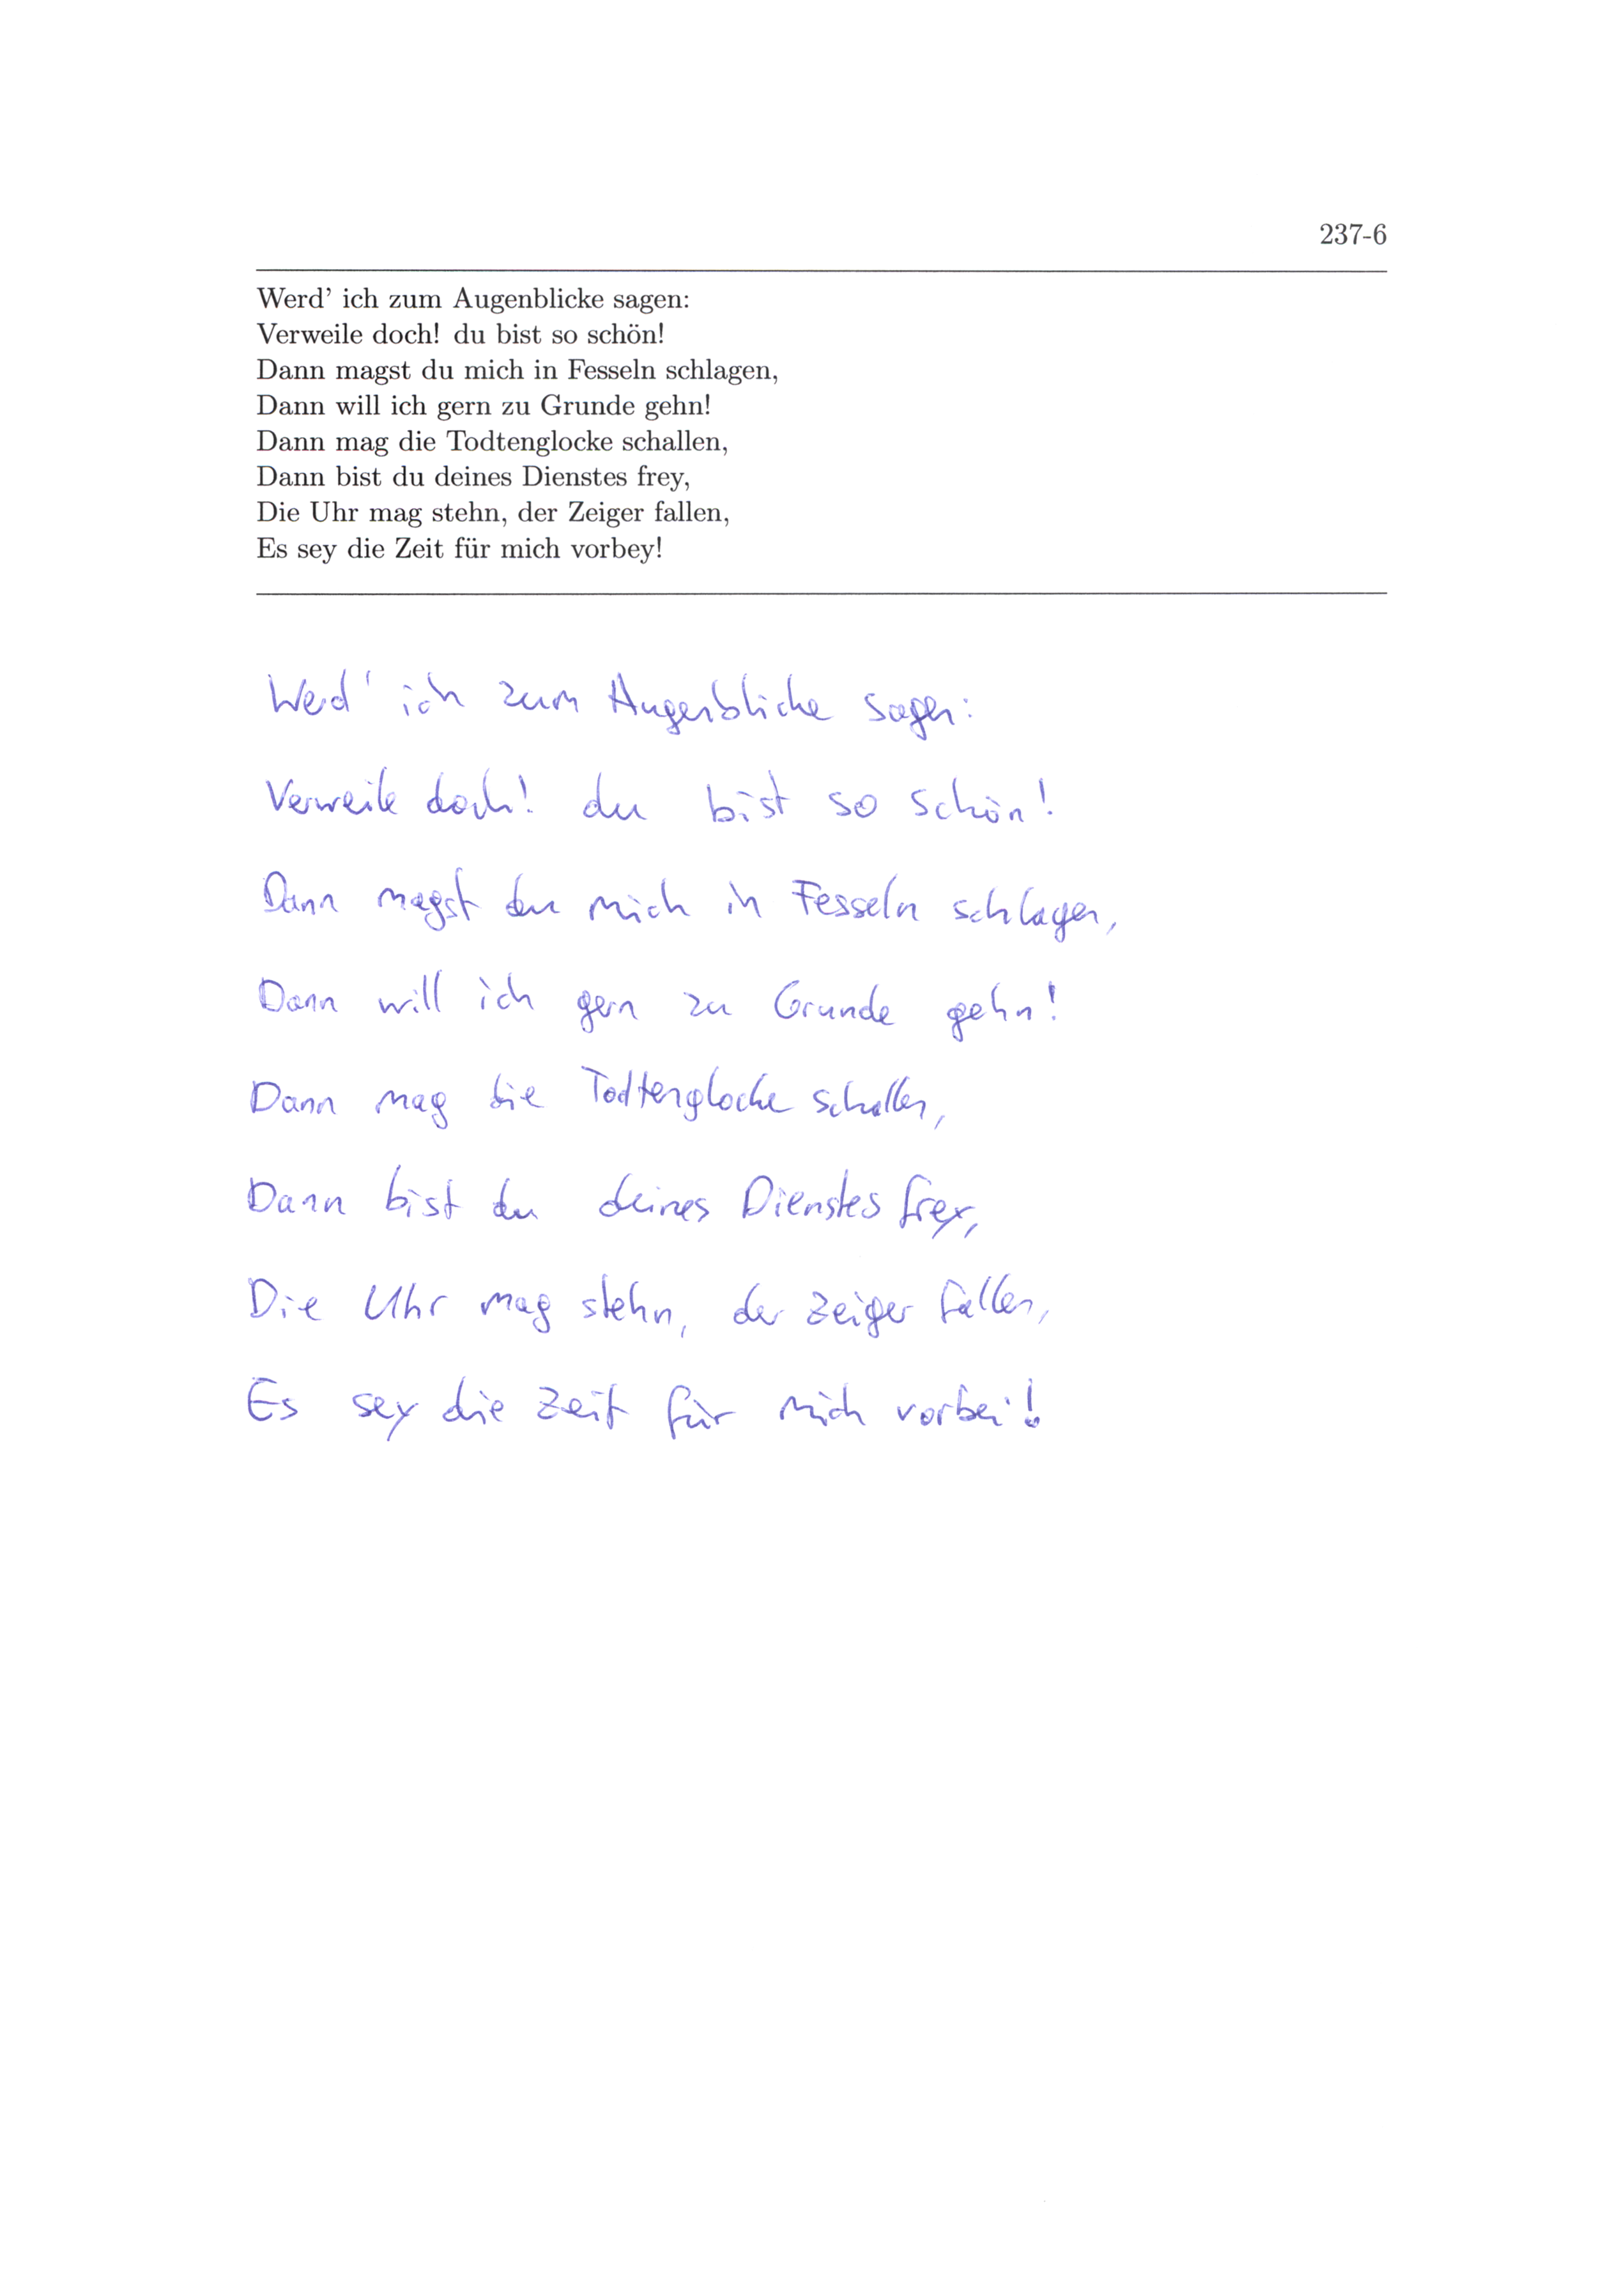 237-6
Werd' ich zum Augenblicke sagen:
Verweile doch! du bist so schön!
Dann magst du mich in Fesseln schlagen,
Dann will ich gern zu Grunde gehn!
Dann mag die Todtenglocke schallen,
Dann bist du deines Dienstes frey,
Die Uhr mag stehn, der Zeiger fallen,
Es sey die Zeit für mich vorbey!
Werd' ich zum Augenblicke sagen:
Verweile doch! du bist so schön!
Dann magst du mich in Fesseln schlagen,
Dann will ich gern zu Grunde gehn!
Dann mag die Todtenglocke schallen,
Dann bist du deines Dienstes frey,
Die Uhr mag stehn, der Zeiger fallen,
Es sey die Zeit für mich vorbei!